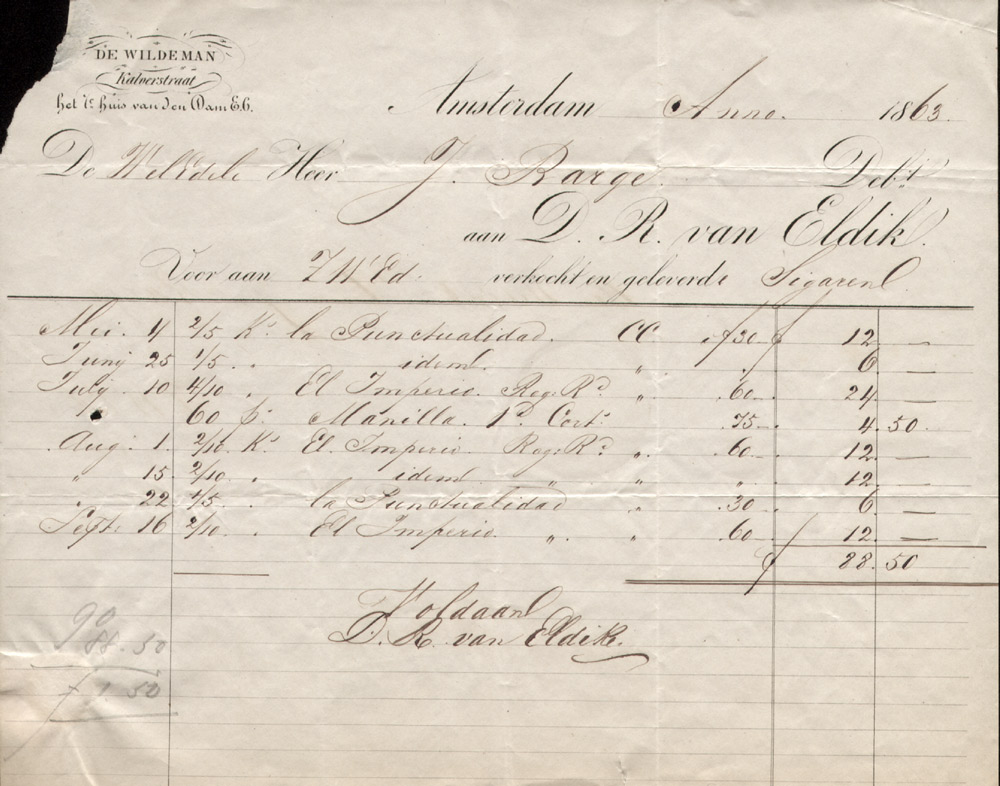 DE WILDEMAN
Kalverstraat
het 7e huis van den Dam E6.
Amsterdam Anno. 1863.
De WelEdele Heer J. Rarge. Debt.
aan D. R. van Eldik.
Voor aan ZWEd. verkocht en geleverde Sigaren
Mei. 2/5 Ko. la Punctualidad. CC f 30 f 12 —
Junij 25 1/5 " idem " " 6 —
July 10 4/10 " El Imperio. Reg. Ra. " 60 24 —
" 60 p: Manilla. 1a. Cort: 75 4.50.
Aug: 1. 2/10 Ko. El Imperio. Reg: Ra. " 60 12 —
" 15 2/10 " idem " " " 12 —
" 22 1/5 " la Punctualidad " 30 6 —
Sept. 16 2/10 " El Imperio. " " 60 12 —
f 88.50
Voldaan
D. R. van Eldik.
90
88.50
f 1.50